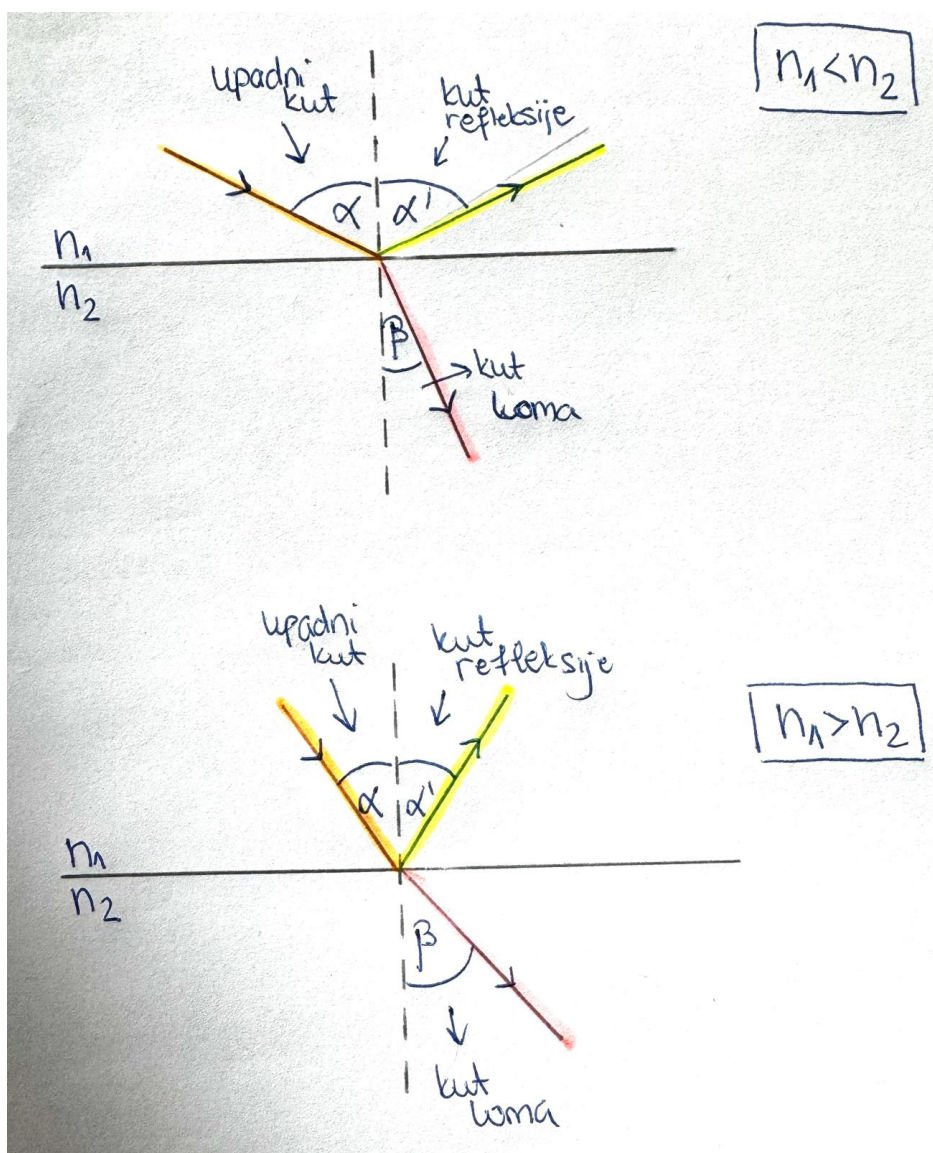 n₁<n₂
upadni
kut
kut
refleksije
α
α'
n₁
n₂
β
kut
loma
n₁>n₂
upadni
kut
kut
refleksije
α
α'
n₁
n₂
β
kut
loma